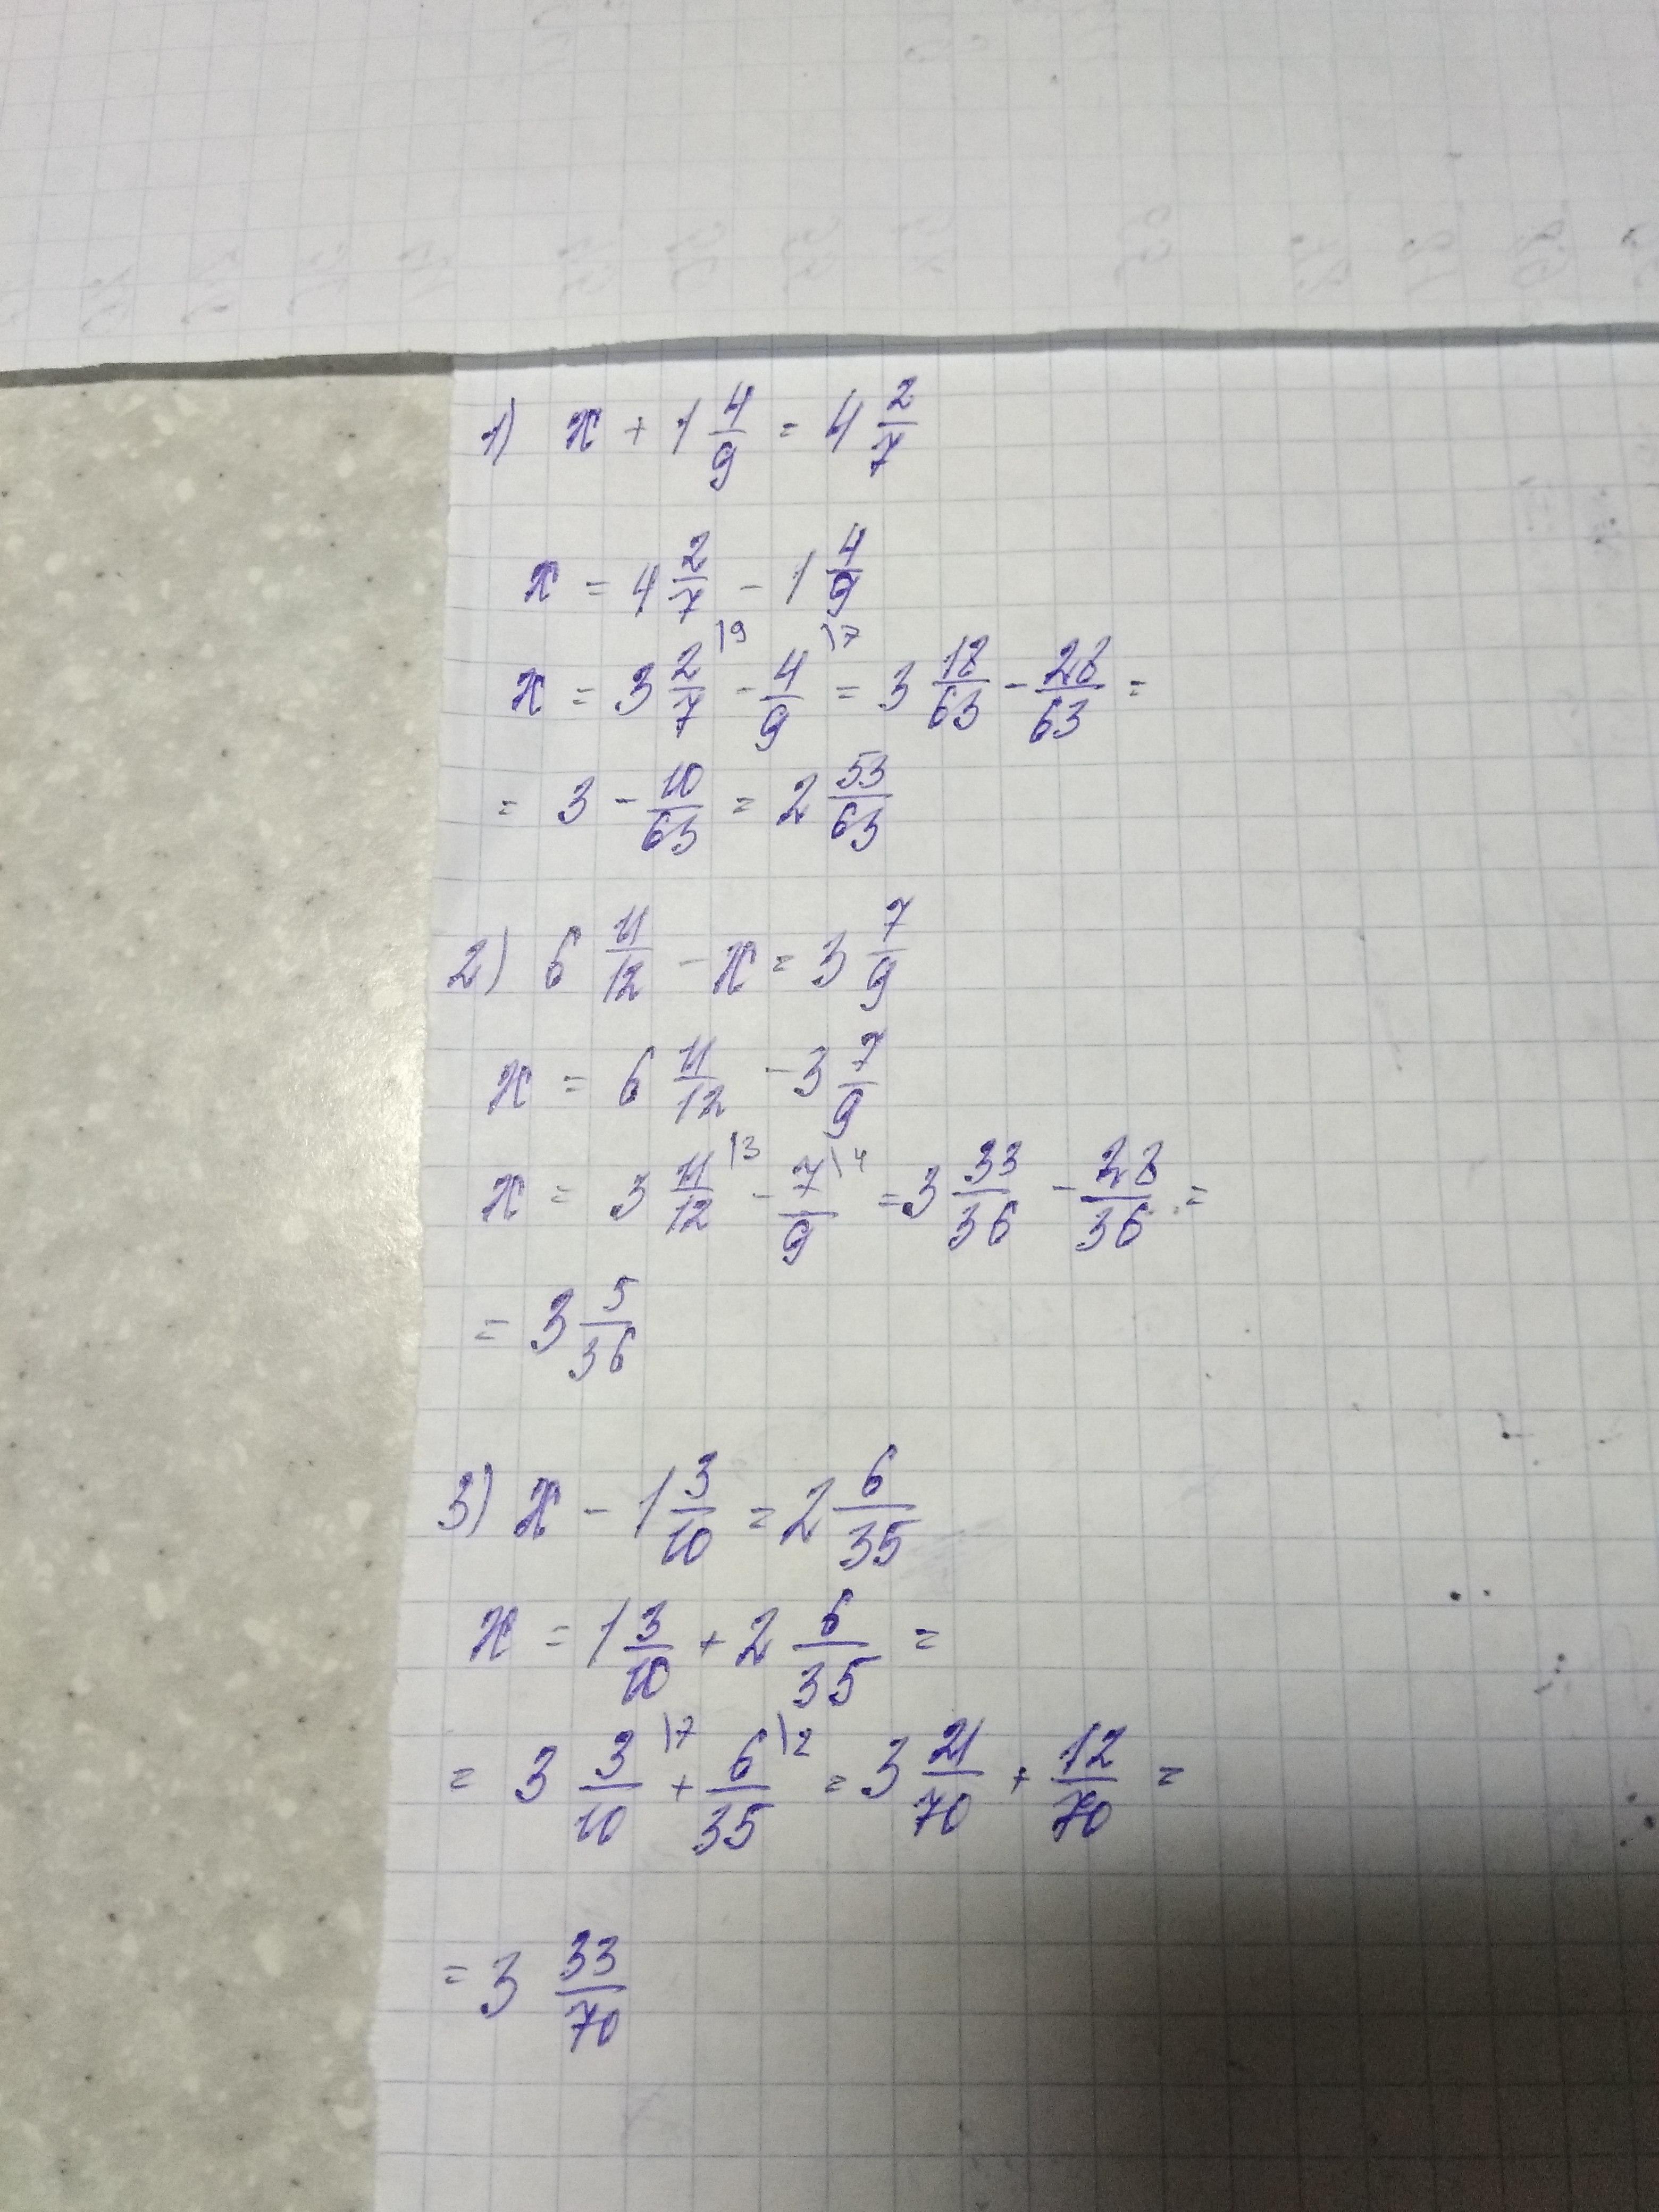 1) x + 1 4/9 = 4 2/7
x = 4 2/7 - 1 4/9
x = 3 2/7 \9 - 4/9 \7 = 3 18/63 - 28/63 =
= 3 - 10/63 = 2 53/63
2) 6 11/12 - x = 3 7/9
x = 6 11/12 - 3 7/9
x = 3 11/12 \3 - 7/9 \4 = 3 33/36 - 28/36 =
= 3 5/36
3) x - 1 3/10 = 2 6/35
x = 1 3/10 + 2 6/35 =
= 3 3/10 \7 + 6/35 \2 = 3 21/70 + 12/70 =
= 3 33/70